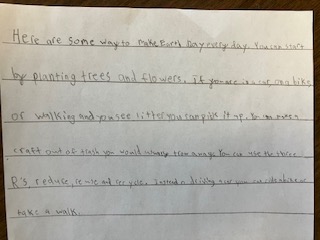 Here are some way to make Earth Day everyday. You can start
by planting trees and flowers. If you are in a car, on a bike
or walking and you see litter you can pick it up. You can make a
craft out of trash you would throw away. You can use the three
R's, reduce, reuse and recycle. Instead of driving your can ride a bike or
take a walk.